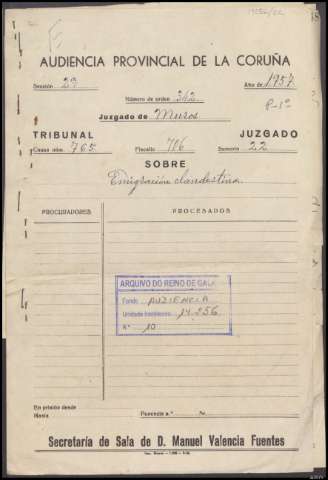 AUDIENCIA PROVINCIAL DE LA CORUÑA
Sección 2ª Año de 1957
Número de orden 342 P-1º
Juzgado de Muros
TRIBUNAL JUZGADO
Causa núm. 765 Fiscalía 716 Sumario 22
SOBRE
Emigración clandestina
PROCURADORES PROCESADOS
ARQUIVO DO REINO DE GALI
Fondo AUDIENCIA
Unidade 14.256
N.º 10
En prisión desde
Hasta Ponencia a º Sr.
Secretaría de Sala de D. Manuel Valencia Fuentes